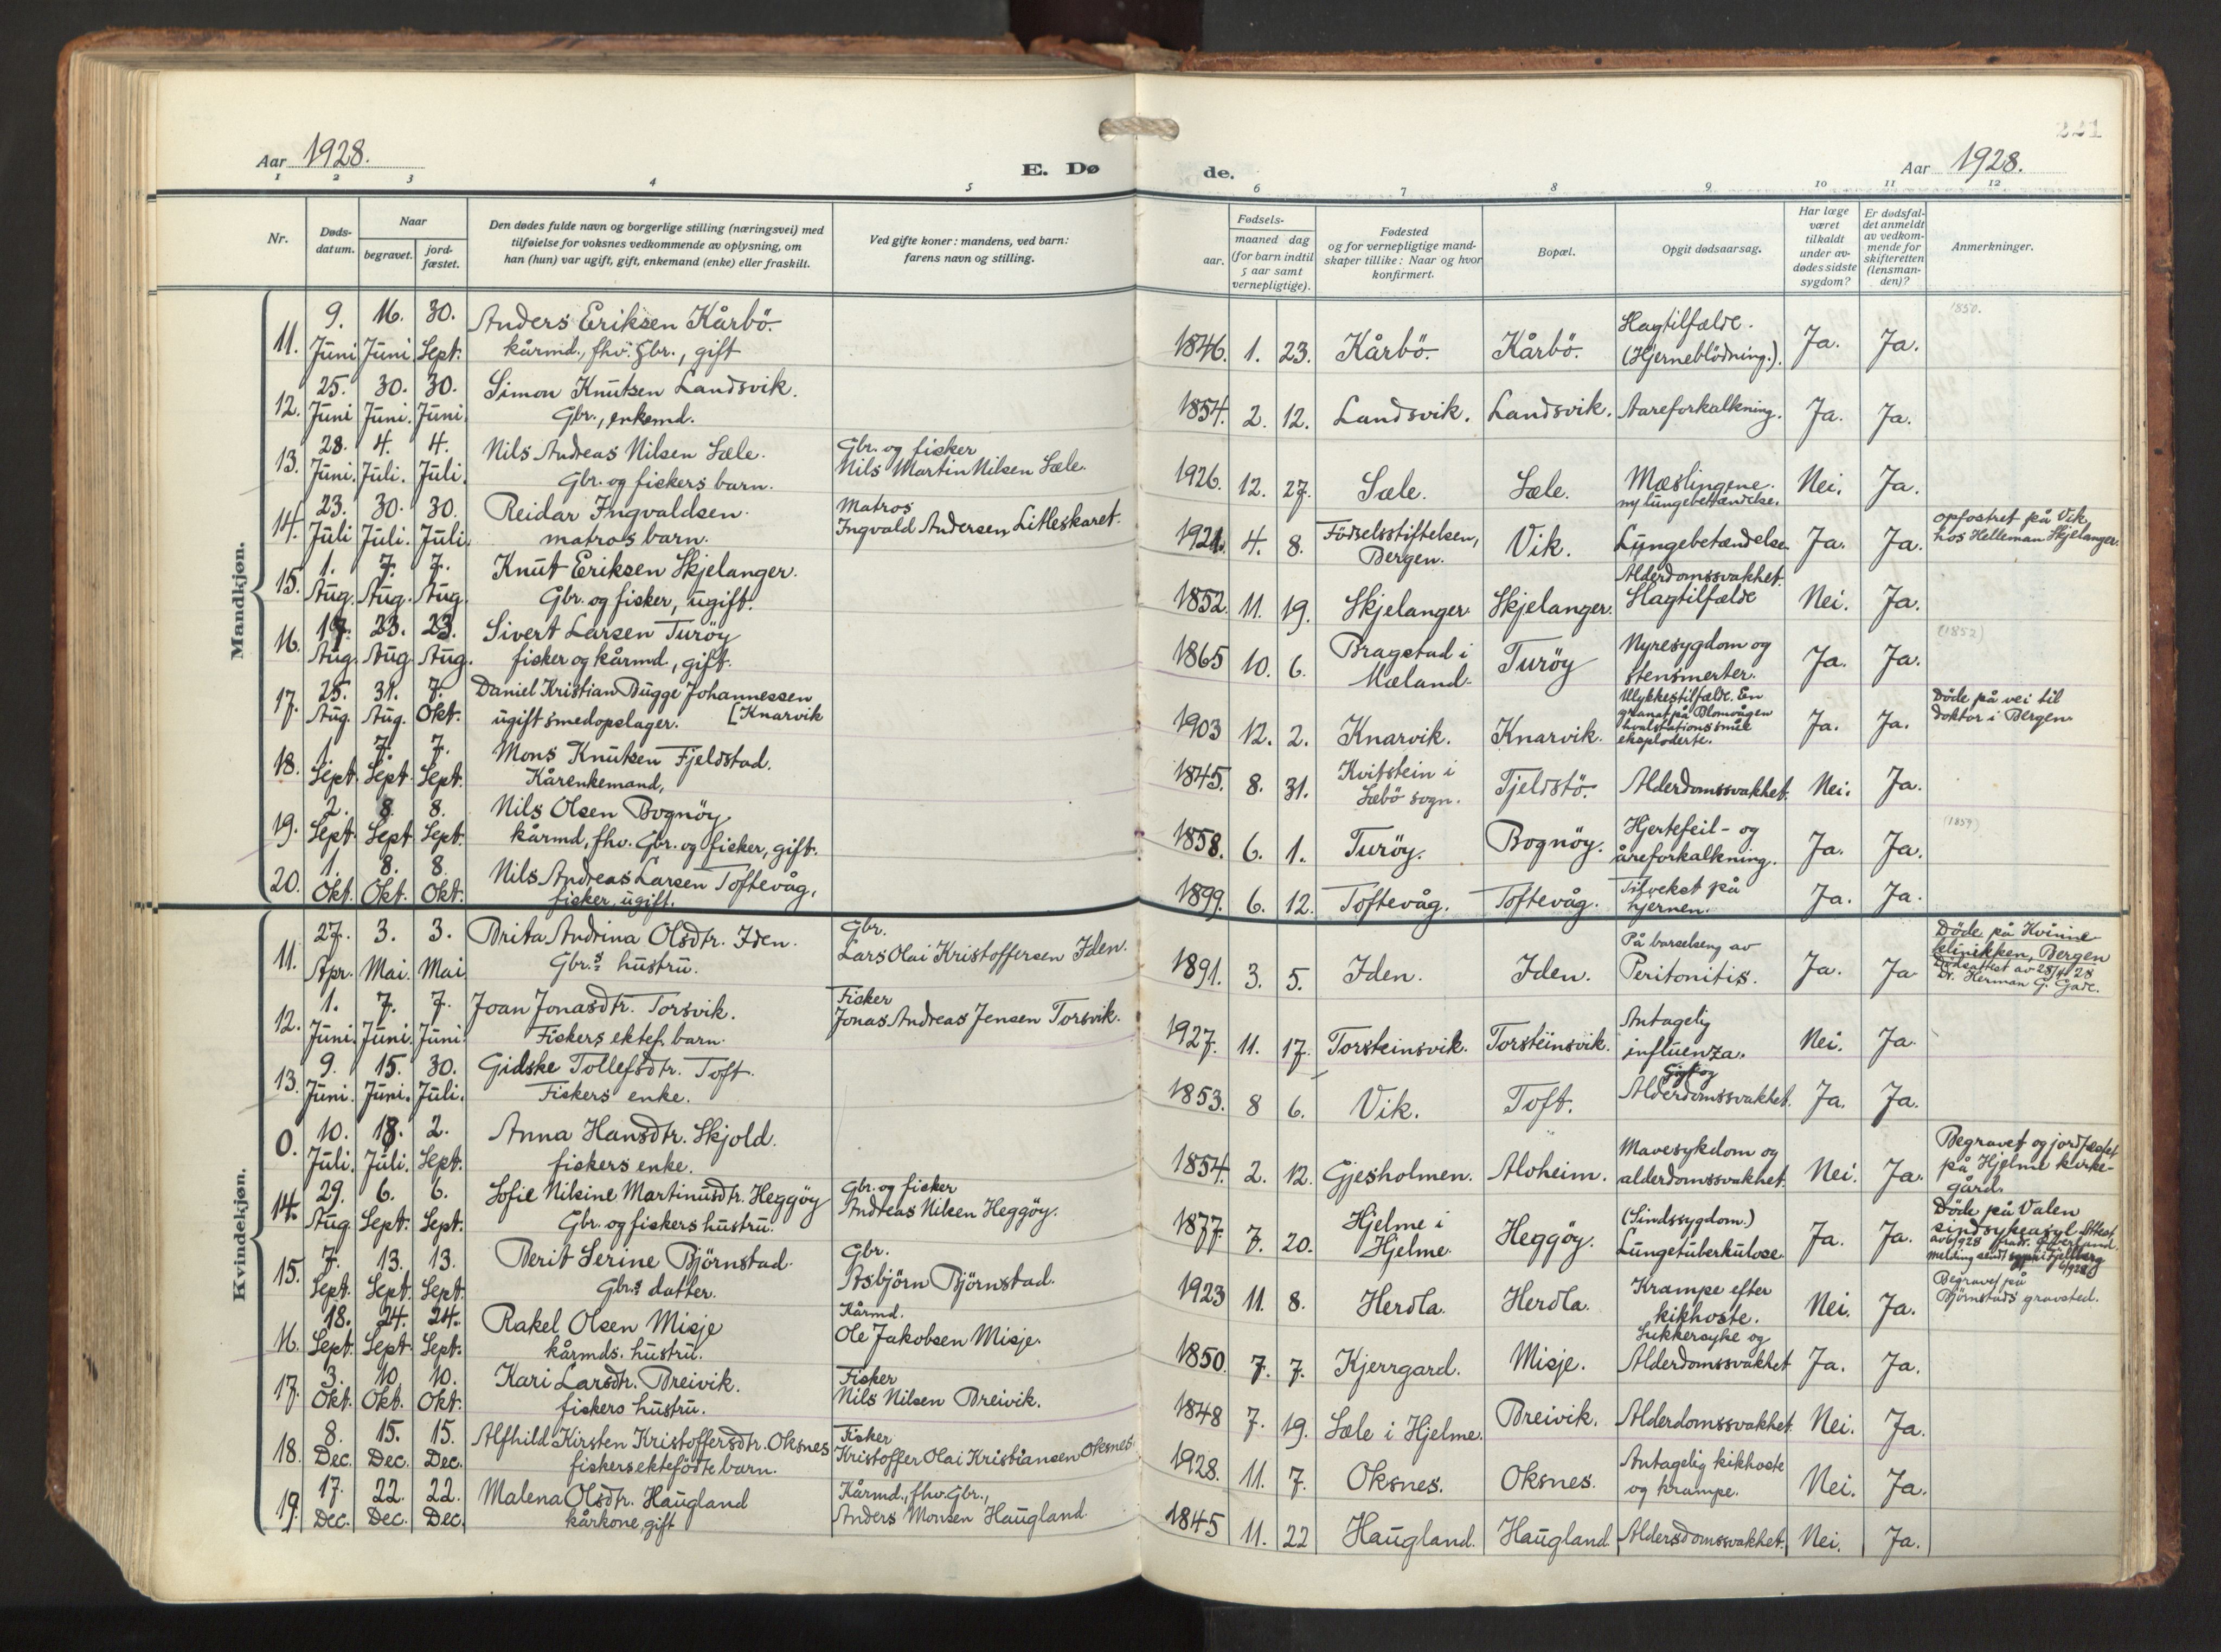 221
Aar 1928.
E. Dø de.
Aar 1928.
1 2 3 4 5 6 7 8 9 10 11 12
Nr.
Døds-
datum.
Naar
begravet.
jord-
fæstet.
Den dødes fulde navn og borgerlige stilling (næringsvei) med
tilføielse for voksnes vedkommende av oplysning, om
han (hun) var ugift, gift, enkemand (enke) eller fraskilt.
Ved gifte koner: mandens, ved barn:
farens navn og stilling.
Fødsels-
aar.
maaned dag
(for barn indtil
5 aar samt
vernepligtige).
Fødested
og for vernepligtige mand-
skaper tillike: Naar og hvor
konfirmert.
Bopæl.
Opgit dødsaarsag.
Har læge
været
tilkaldt
under av-
dødes sidste
sygdom?
Er dødsfal-
det anmeldt
av vedkom-
mende for
skifteretten
(lensman-
den)?
Anmerkninger.
Mandkjøn.
11. 9. Juni 16. Juni 30. Sept. Anders Eriksen Kårbö.
kårmd., fhv. Gbr., gift
1846. 1. 23. Kårbö. Kårbö. Slagtilfælde.
(Hjerneblödning.). Ja. Ja. 1850.
12. 25. Juni 30. Juni. 30. Juni. Simon Knutsen Landsvik.
Gbr., enkemd.
1854. 2. 12. Landsvik. Landsvik. Aareforkalkning. Ja. Ja.
13. 28. Juni. 4. Juli. 4. Juli. Nils Andreas Nilsen Sæle.
Gbr. og fiskers barn.
Gbr. og fisker
Nils Martin Nilsen Sæle.
1926. 12. 27. Sæle. Sæle. Mæslingene.
ny lungebetændelse. Nei. Ja.
14. 23. Juli 30. Juli. 30. Juli. Reidar Ingvaldsen.
matros barn.
Matros
Ingvald Andersen Litleskaret.
1921. 4. 8. Födselsstiftelsen,
Bergen. Vik. Lungebetændelse Ja. Ja. opfostret på Vik
hos Helleman Skjelanger.
15. 1. Aug. 7. Aug. 7. Aug. Knut Eriksen Skjelanger.
Gbr. og fisker, ugift.
1852. 11. 19. Skjelanger. Skjelanger. Alderdomssvakhet.
Slagtilfælde Nei. Ja.
16. 17. Aug. 23. Aug 23. Aug. Sivert Larsen Turöy
fisker og kårmd., gift.
1865 10. 6. Bragstad i
Mæland. Turöy Nyresygdom og
stensmerter. Ja. Ja. (1852)
17. 25. Aug. 31. Aug. 7. Okt. Daniel Kristian Bugge Johannessen
ugift smedopslager. [Knarvik
1903 12. 2. Knarvik. Knarvik. Ulykkestilfælde. En
granat på Blomvågen
hvalstations smie
eksploderte. Ja. Ja. Döde på vei til
doktor i Bergen.
18. 1. Sept. 7. Sept. 7. Sept. Mons Knutsen Fjeldstad.
Kårenkemand,
1845. 8. 31. Kvitstein i
Sæbö sogn. Tjeldstö. Alderdomssvakhet. Nei. Ja.
19. 2. Sept. 8. Sept 8. Sept. Nils Olsen Bognöy
kårmd, fhv. Gbr. og fisker, gift.
1858. 6. 1. Turöy. Bognöy. Hjertefeil- og
åreforkalkning. Ja. Ja. (1859)
20. 1. Okt. 8. Okt. 8. Okt. Nils Andreas Larsen Toftevåg,
fisker, ugift.
1899. 6. 12. Toftevåg. Toftevåg. Tilvekst på
hjernen. Ja. Ja.
Kvindekjøn.
11. 27. Apr. 3. Mai. 3. Mai Brita Andrina Olsdtr. Iden.
Gbr.s hustru.
Gbr.
Lars Olai Kristoffersen Iden.
1891. 3. 5. Iden. Iden. På barselseng av
Peritonitis. Ja. Ja. Döde på Kvinne-
klinikken, Bergen
Dödsattest av 28/4 28
Dr. Herman G. Gade.
12. 1. Juni. 7. Juni. 7. Juni. Joan Jonasdtr. Torsvik.
Fiskers ektef. barn.
Fisker
Jonas Andreas Jensen Torsvik.
1927. 11. 17. Torsteinsvik. Torsteinsvik. Antagelig
influenza. Nei. Ja.
13. 9. Juni. 15. Juni. 30. Juli. Gidske Tollefsdtr. Toft.
Fiskers enke.
1853. 8 6. Vik. Toft. Gigt og
Alderdomssvakhet. Ja. Ja.
0. 10. Juli. 18. Juli. 2. Sept. Anna Hansdtr. Skjold.
fiskers enke.
1854. 2. 12. Gjesholmen. Alvheim. Mavesykdom og
alderdomssvakhet. Nei. Ja. Begravet og jordfæstet
på Hjelme kirke-
gård.
14. 29. Aug 6. Sept. 6. Sept. Sofie Nilsine Martinusdtr. Heggöy
Gbr. og fiskers hustru.
Gbr. og fisker
Andreas Nilsen Heggöy.
1877. 7. 20. Hjelme i
Hjelme. Heggöy. (Sindssygdom.)
Lungetuberkulose. Ja. Ja. Döde på Valen
sindsykeasyl. Attest
15. 7. Sept. 13. Sept. 13. Sept. Berit Serine Björnstad.
Gbr.s datter.
Gbr.
Asbjörn Björnstad.
1923 11. 8. Herdla. Herdla. Krampe efter
kikhoste. Nei. Ja. Begravet på
Björnstads gravsted.
16. 18. Sept. 24. Sept. 24. Sept. Rakel Olsen Misje
kårmds. hustru.
Kårmd.
Ole Jakobsen Misje.
1850. 7. 7. Kjerrgard. Misje. Sukkersyke og
Alderdomssvakhet Ja. Ja.
17. 3. Okt. 10. Okt. 10. Okt. Kari Larsdtr. Breivik.
fiskers hustru.
Fisker
Nils Nilsen Breivik.
1848 7. 19. Sæle i Hjelme. Breivik. Alderdomssvakhet. Nei. Ja.
18. 8. Dec. 15. Dec. 15. Dec. Alfhild Kirsten Kristoffersdtr. Oksnes
fiskers ektefödte barn.
Fisker
Kristoffer Olai Kristiansen Oksnes.
1928. 11. 7. Oksnes. Oksnes. Antagelig kikhoste
og krampe. Nei. Ja.
19. 17. Dec. 22. Dec. 22. Dec. Malena Olsdtr. Haugland
kårkone, gift
Kårmd., fhv. Gbr.,
Anders Monsen Haugland.
1845 11. 22 Haugland. Haugland. Aldersdomssvakhet. Nei. Ja.